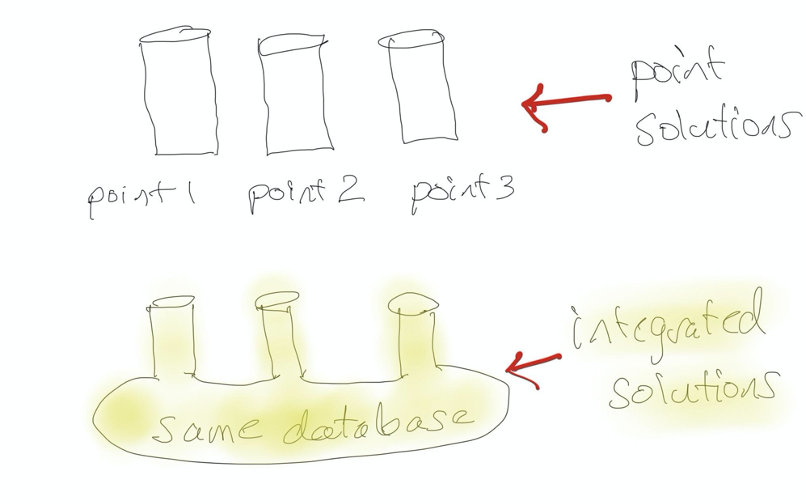 point
solutions
point 1 point 2 point 3
integrated
solutions
same database